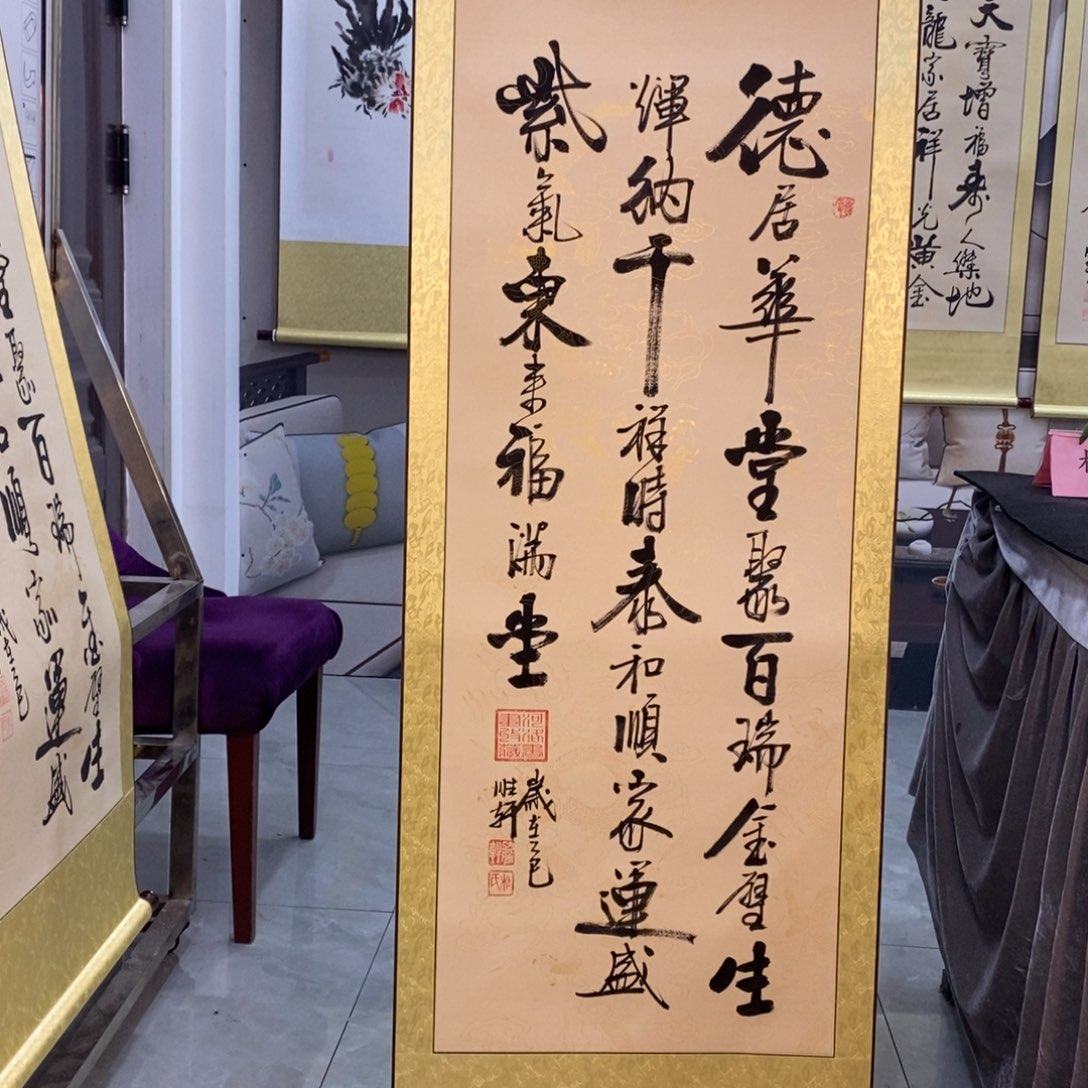 德居華堂聚百瑞金壁生
輝納千祥時泰和順家運盛
紫氣東来福满堂
歲在乙巳
胜轩
天寶增福寿人傑地
龍家居祥光黄金
聚百瑞金壁生
和順家運盛